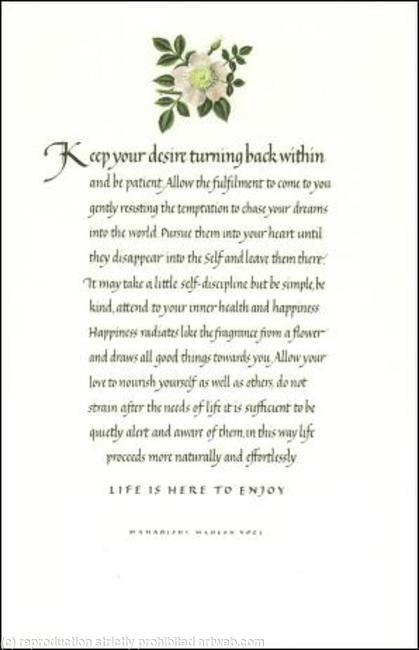 Keep your desire turning back within
and be patient. Allow the fulfilment to come to you
gently resisting the temptation to chase your dreams
into the world. Pursue them into your heart until
they disappear into the Self and leave them there.
It may take a little self-discipline but be simple, be
kind, attend to your inner health and happiness
Happiness radiates like the fragrance from a flower
and draws all good things towards you. Allow your
love to nourish yourself as well as others, do not
strain after the needs of life it is sufficient to be
quietly alert and aware of them, in this way life
proceeds more naturally and effortlessly
LIFE IS HERE TO ENJOY
MAHARISHI MAHESH YOGI
(c) reproduction strictly prohibited artweb.com